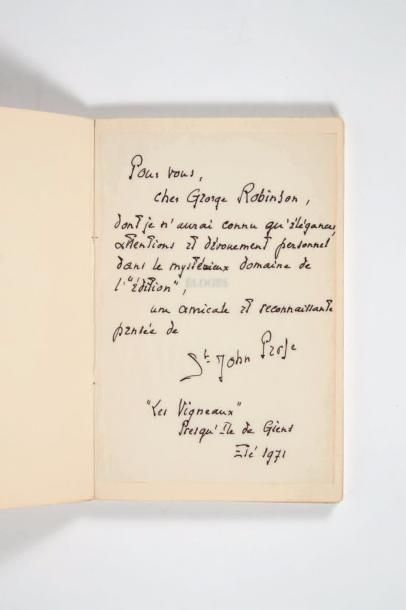 Pour vous,
cher George Robinson,
dont je n'aurai connu qu'élégances,
attentions et dévouement personnel
dans le mystérieux domaine de
l'"édition",
ELOGES
une amicale et reconnaissante
pensée de
St. John Perse
"Les Vigneaux"
Presqu'Ile de Giens
Eté 1971